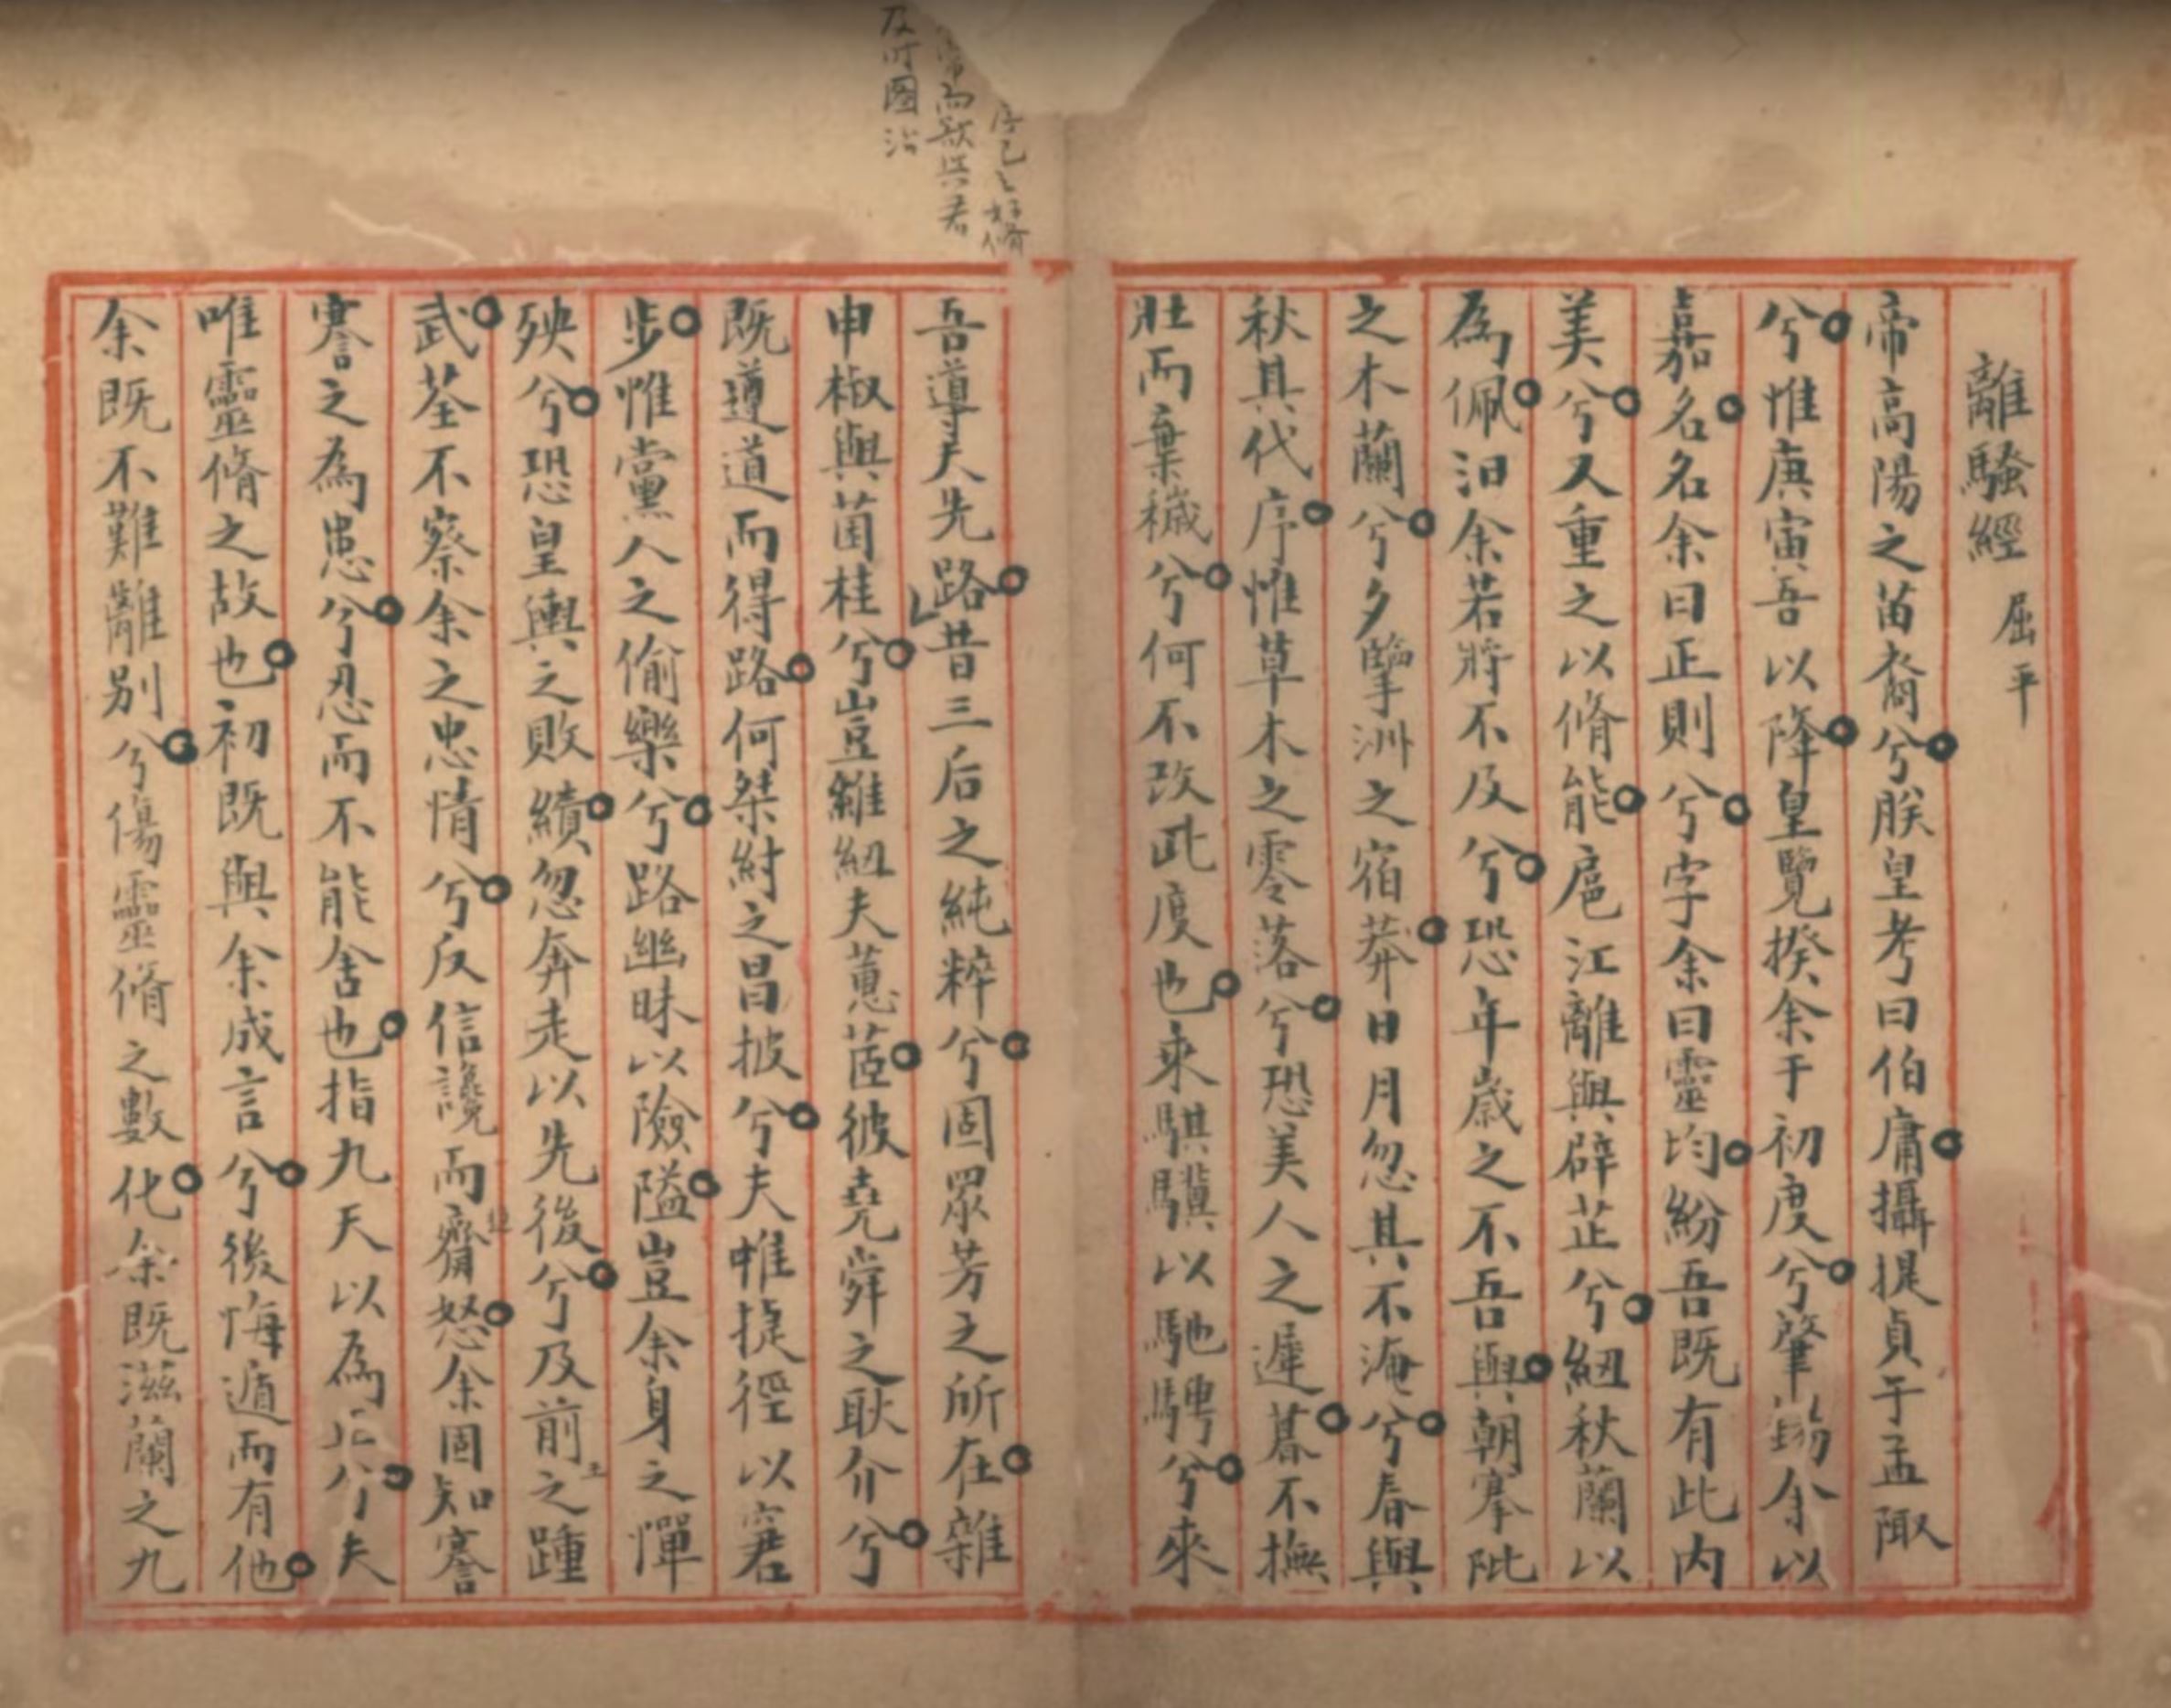 離騷經 屈平
帝高陽之苗裔兮朕皇考曰伯庸攝提貞于孟陬
兮惟庚寅吾以降皇覽揆余于初度兮肇錫余以
嘉名名余曰正則兮字余曰靈均紛吾既有此內
美兮又重之以脩能扈江離與辟芷兮紐秋蘭以
為佩汩余若將不及兮恐年歲之不吾與朝搴阰
之木蘭兮夕擥洲之宿莽日月忽其不淹兮春與
秋其代序惟草木之零落兮恐美人之遲暮不撫
壯而棄穢兮何不改此度也乘騏驥以馳騁兮來
吾導夫先路昔三后之純粹兮固眾芳之所在雜
申椒與菌桂兮豈維紐夫蕙茝彼堯舜之耿介兮
既遵道而得路何桀紂之昌披兮夫惟捷徑以窘
步惟黨人之偷樂兮路幽昧以險隘豈余身之憚
殃兮恐皇輿之敗績忽奔走以先後兮及前王之踵
武荃不察余之忠情兮反信讒而齌怒余固知謇
謇之為患兮忍而不能舍也指九天以為正兮夫
唯靈脩之故也初既與余成言兮後悔遁而有他
余既不難離別兮傷靈脩之數化余既滋蘭之九
序己之好脩
而欲與君
及時圖治